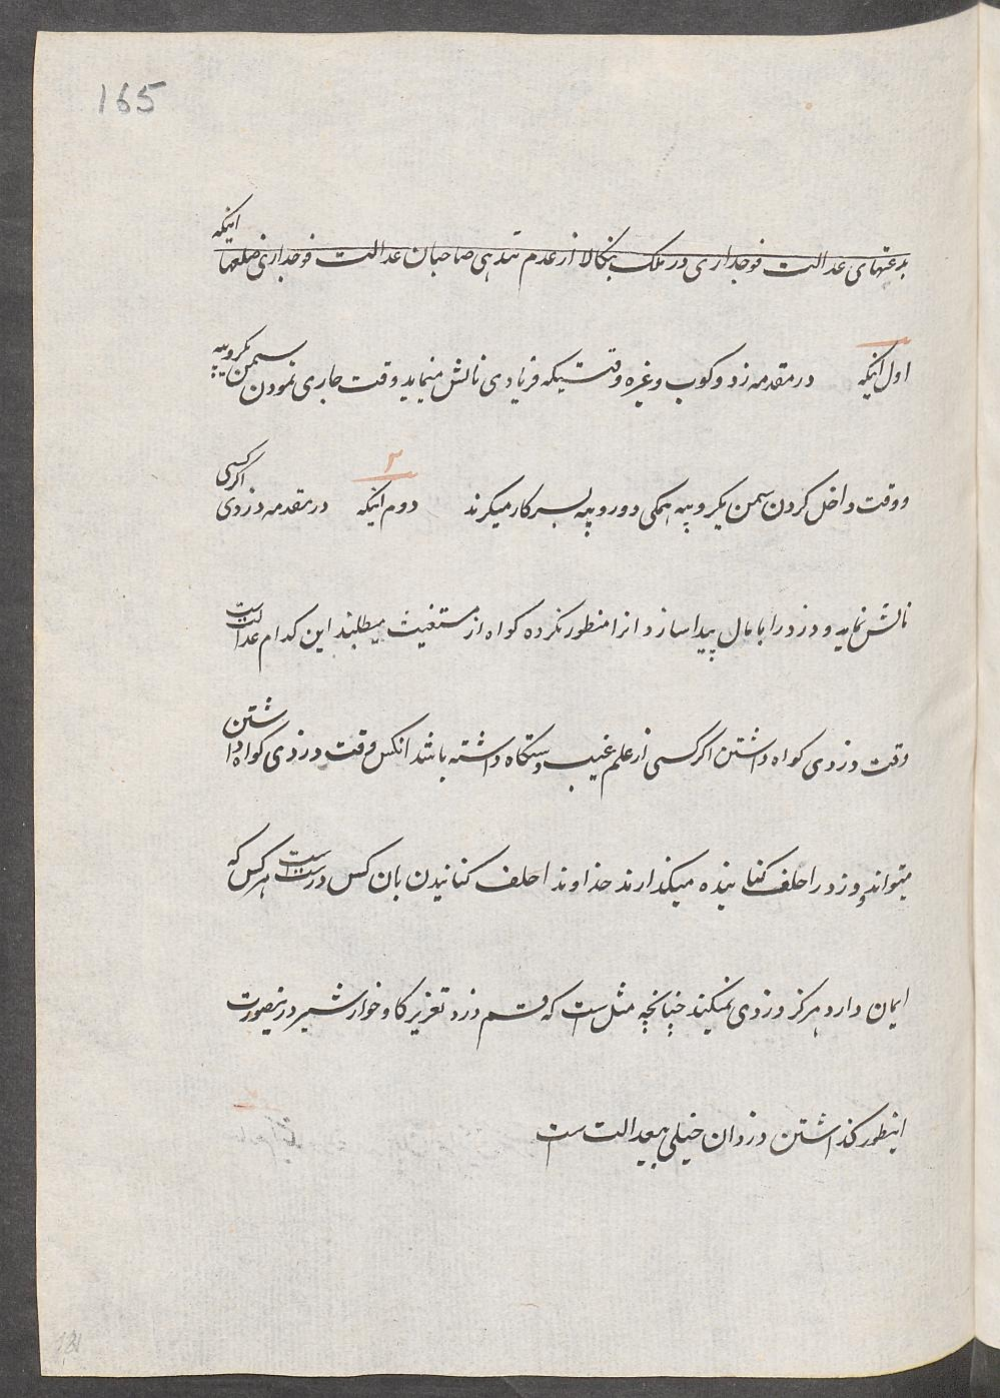 165
بدعتهای عدالت فوجداری در ملک بنگالا از عدم تندهی صاحبان عدالت فوجداری ضلعها اینکه
اول اینکه در مقدمه زد و کوب و غیره وقتیکه فریادی نالش مینماید وقت جاری نمودن سمن یکروپیه
و وقت داخل کردن سمن یکروپیه همگی دو روپیه بسرکار میگرند ۲ دوم اینکه در مقدمه دزدی اگر کسی
نالش نماید و دزد را با مال پیدا سازد انرا منظور نکرده کواه از مستغیث میطلبند این کدام عدالت است
وقت دزدی کواه داشتن اگر کسی از علم غیب دستکاه داشته باشد انکس وقت دزدی کواه داشتن
میتواند و دزد را حلف کنانیده میکذارند خداوندا حلف کنانیدن بان کس درست است هر کس که
ایمان دارد هرکز دزدی نمیکند چنانچه مثل است که قسم دزد تعزیر کاو خوار شیر درینصورت
اینطور کذاشتن دزدان خیلی بیعدالت ست
181